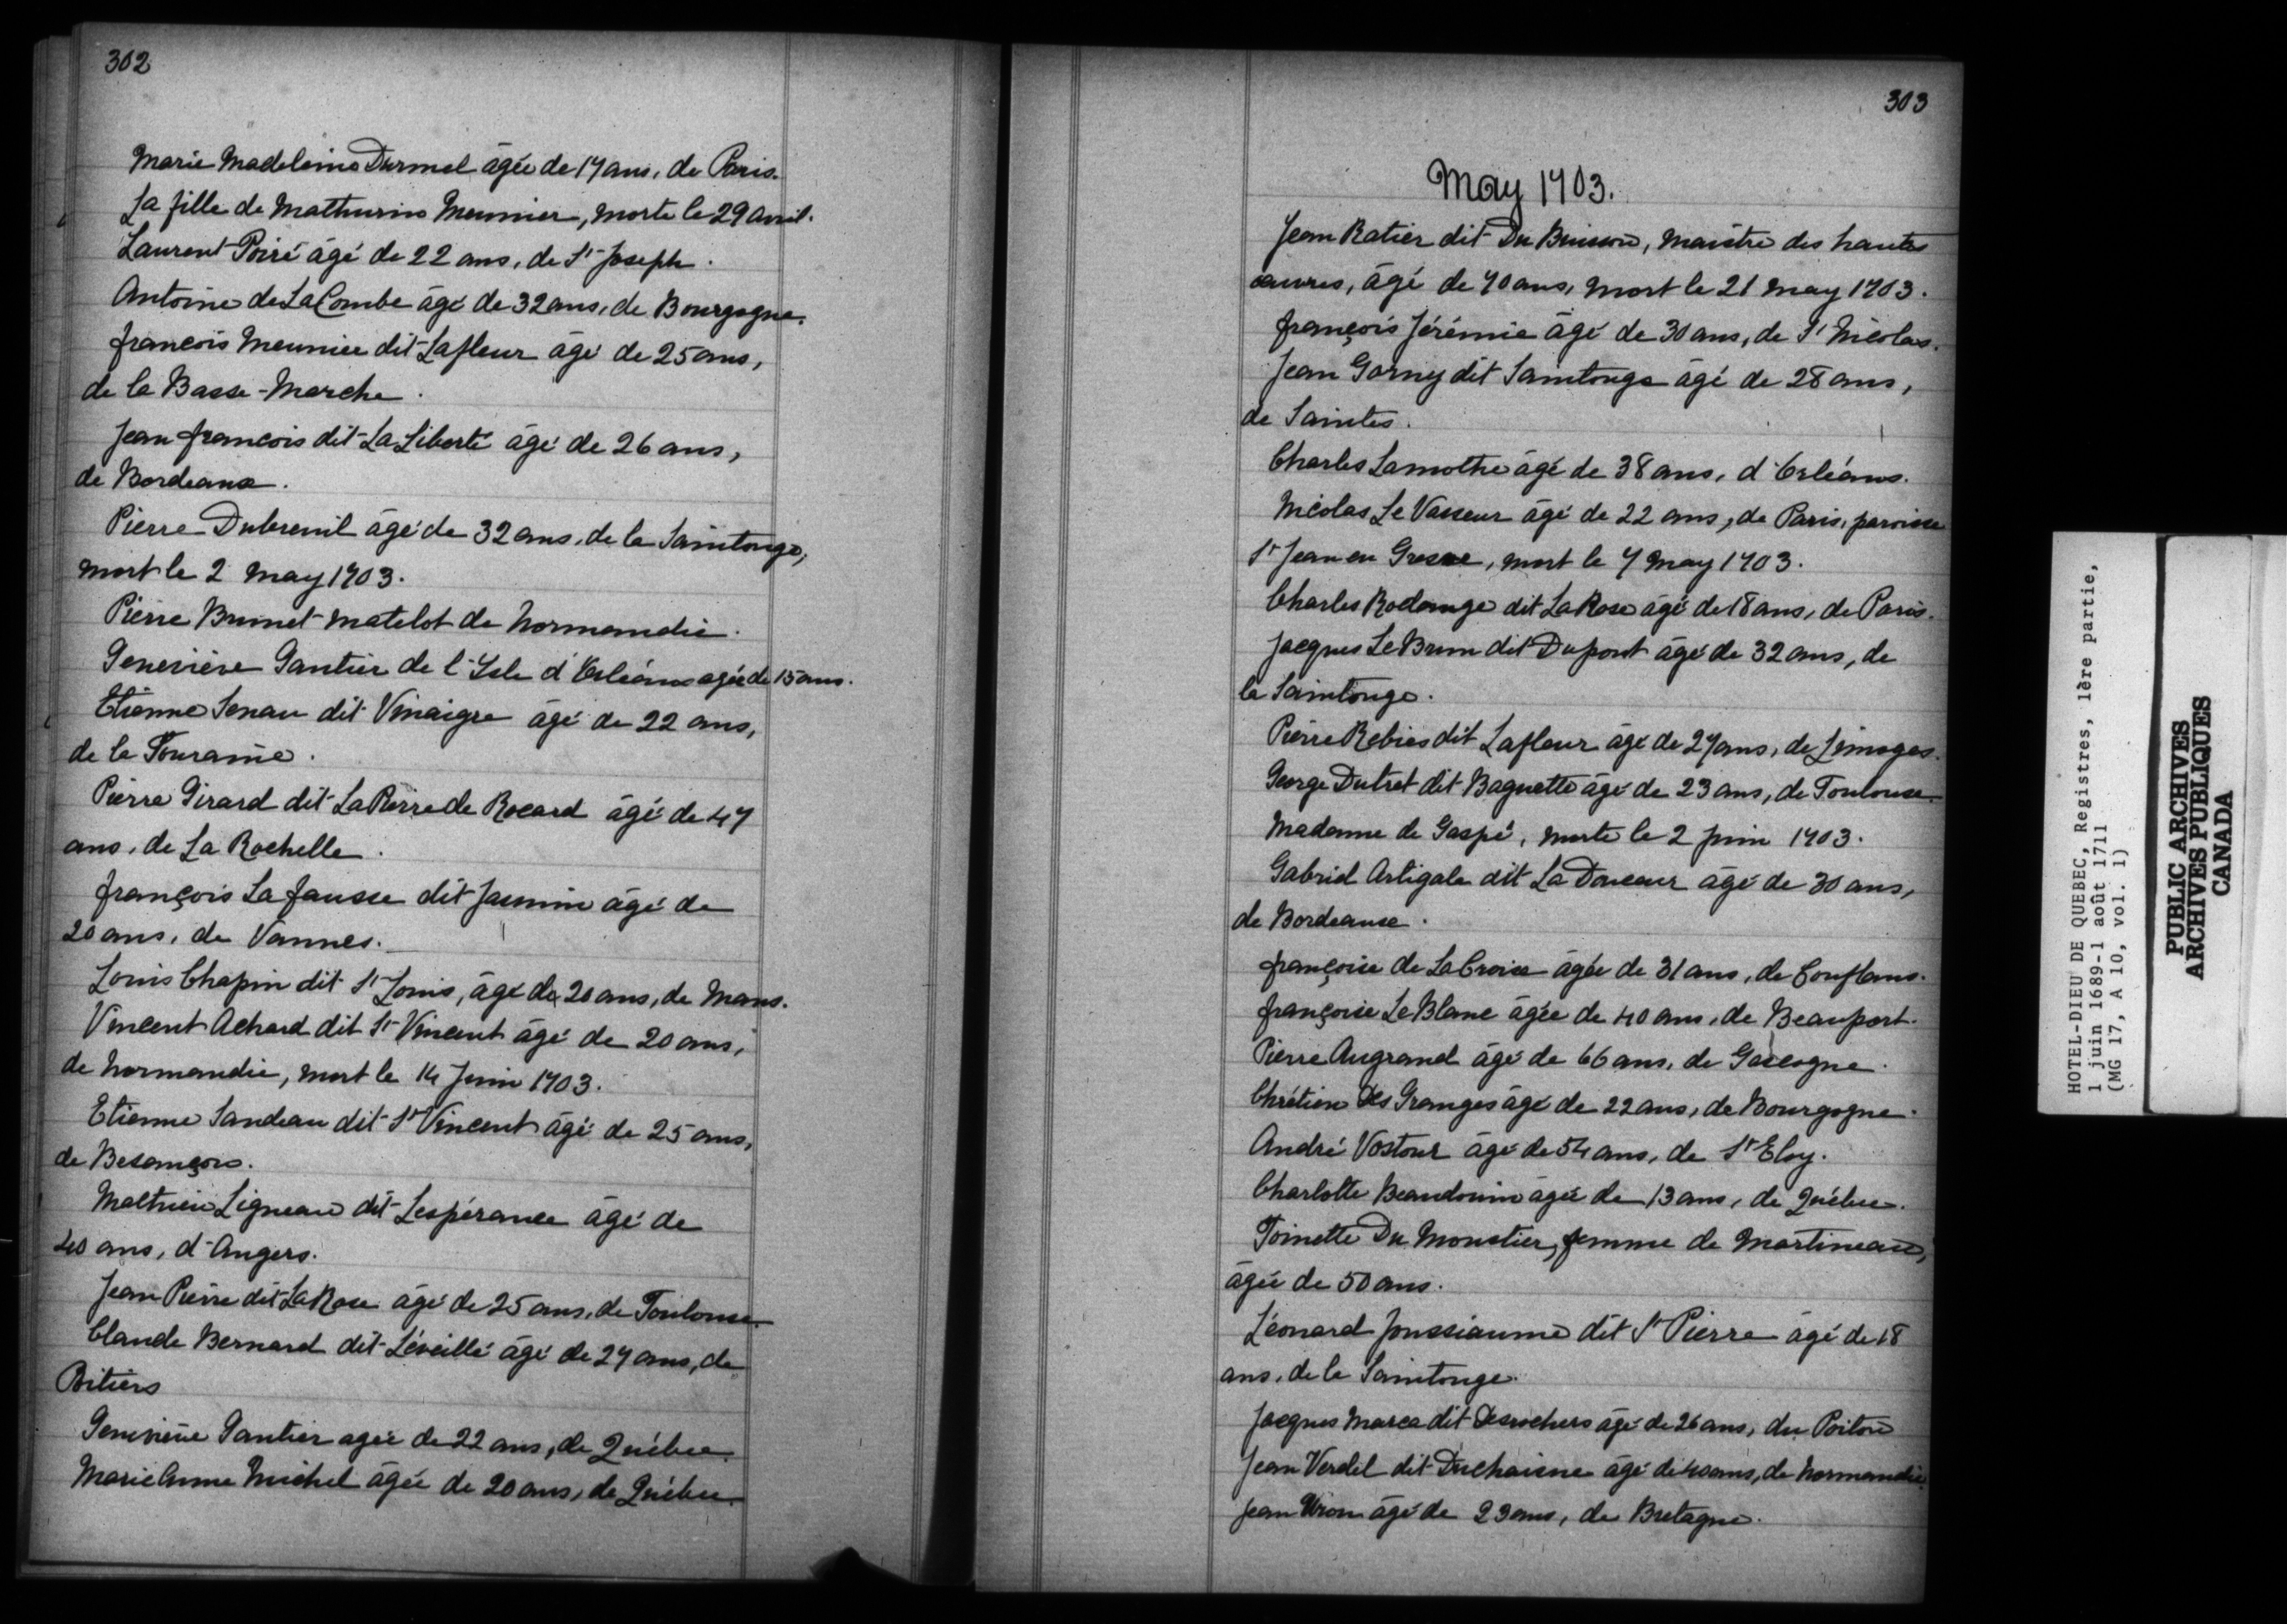 302
Marie Madeleine Durmel âgée de 17 ans, de Paris.
La fille de Mathurin Meunier, morte le 29 avril.
Laurent Poiré âgé de 22 ans, de St Joseph.
Antoine de La Combe âgé de 32 ans, de Bourgogne.
françois Meunier dit Lafleur âgé de 25 ans,
de la Basse-Marche.
Jean françois dit La Liberté âgé de 26 ans,
de Bordeaux.
Pierre Dubreuil âgé de 32 ans, de la Saintonge,
mort le 2 May 1703.
Pierre Brunet matelot de Normandie.
Geneviève Gautier de l'Isle d'Orléans agée de 15 ans.
Etienne Senau dit Vinaigre âgé de 22 ans,
de la Touraine.
Pierre Girard dit La Pierre de Rocard âgé de 47
ans, de La Rochelle.
françois La fausse dit Jasmin âgé de
20 ans, de Vannes.
Louis Chapin dit St Louis, âgé de 20 ans, de Mans.
Vincent Achard dit St Vincent âgé de 20 ans,
de Normandie, mort le 14 Juin 1703.
Etienne Sandeau dit St Vincent âgé de 25 ans,
de Besançon.
Mathieu Ligneau dit Lespérance âgé de
40 ans, d'Angers.
Jean Pierre dit La Rose âgé de 25 ans, de Toulouse.
Claude Bernard dit Léveillé âgé de 27 ans, de
Poitiers
Geneviève Gautier agée de 22 ans, de Québec.
Marie Anne Michel âgée de 20 ans, de Québec.
303
May 1703.
Jean Ratier dit Du Buisson, maistre des hautes
œuvres, âgé de 70 ans, mort le 21 May 1703.
françois Jérémie âgé de 30 ans, de St Nicolas.
Jean Gorney dit Saintonge âgé de 28 ans,
de Saintes.
Charles Lamothe âgé de 38 ans, d'Orléans.
Nicolas Le Vasseur âgé de 22 ans, de Paris, paroisse
St Jean en Gresve, mort le 7 May 1703.
Charles Rodange dit La Rose âgé de 18 ans, de Paris.
Jacques Le Brun dit Dupont âgé de 32 ans, de
la Saintonge.
Pierre Rebies dit Lafleur âgé de 27 ans, de Limoges.
George Dutret dit Baguette âgé de 23 ans, de Toulouse.
Madame de Gaspé, morte le 2 Juin 1703.
Gabriel Artigale dit La Douceur âgé de 30 ans,
de Bordeaux.
françoise de La Croix âgée de 31 ans, de Conflans.
françoise Le Blanc âgée de 40 ans, de Beauport.
Pierre Augrand âgé de 66 ans, de Gascogne.
Chrétien Des Granges âgé de 22 ans, de Bourgogne.
André Vostour âgé de 54 ans, de St Eloy.
Charlotte Beaudouin âgée de 13 ans, de Québec.
Toinette Du Moustier, femme de Martineau,
âgée de 50 ans.
Léonard Joussiaume dit St Pierre âgé de 18
ans, de la Saintonge.
Jacques Marca dit Desrochers âgé de 26 ans, du Poitou
Jean Verdil dit Duchaisne âgé de 40 ans, de Normandie.
Jean Uron âgé de 23 ans, de Bretagne.
HOTEL-DIEU DE QUEBEC, Registres, 1ère partie,
1 juin 1689-1 août 1711
(MG 17, A 10, vol. 1)
PUBLIC ARCHIVES
ARCHIVES PUBLIQUES
CANADA